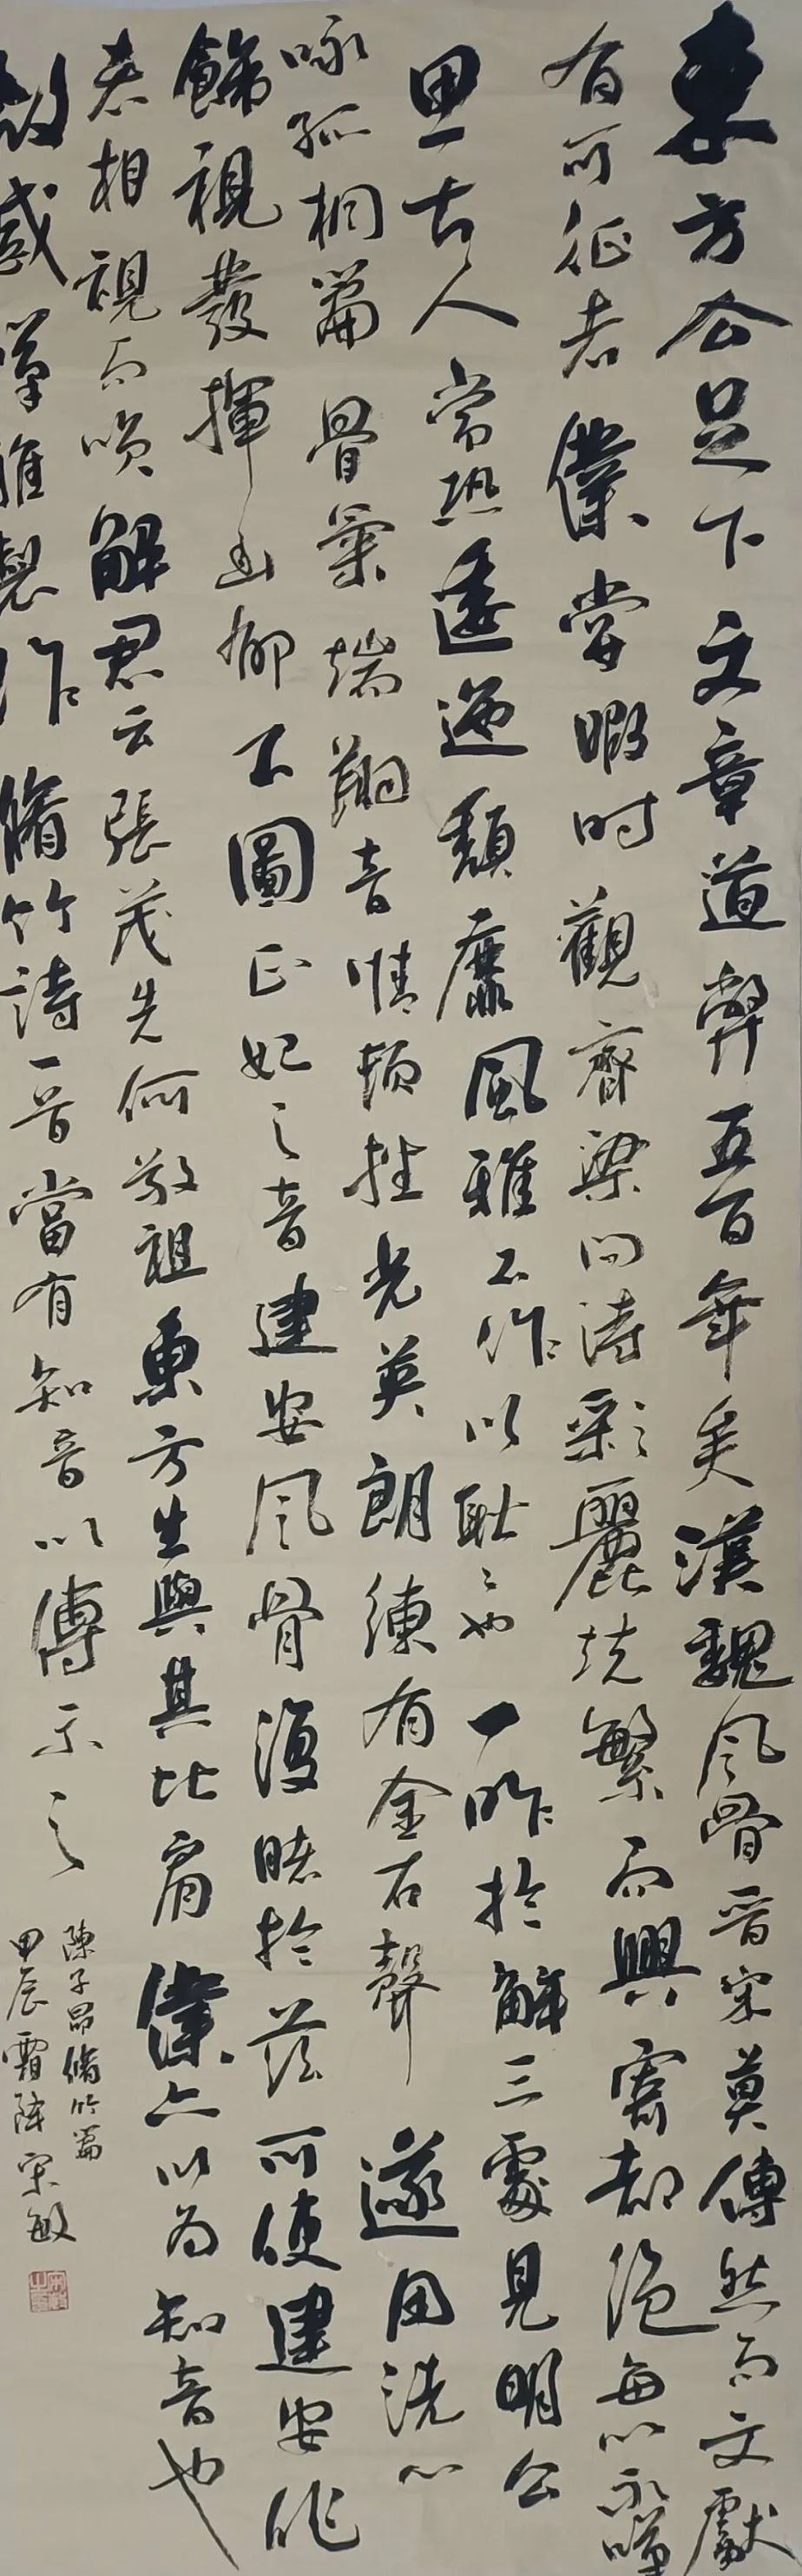 東方公足下文章道弊五百年矣漢魏風骨晋宋莫傳然而文獻
有可征者僕嘗暇時觀齊梁間詩彩麗競繁而興寄都絕每以永嘆
思古人常恐逶迤頹靡風雅不作以耿耿也一昨於解三處見明公
咏孤桐篇骨氣端翔音情頓挫光英朗練有金石聲遂用洗心
飾視發揮幽鬱不圖正始之音建安風骨復睹於茲可使建安作
者相視而笑解君云張茂先何敬祖東方生與其比肩僕亦以為知音也
故感嘆雅製作脩竹詩一首當有知音以傳示之
陳子昂脩竹篇
甲辰霜降宋敏